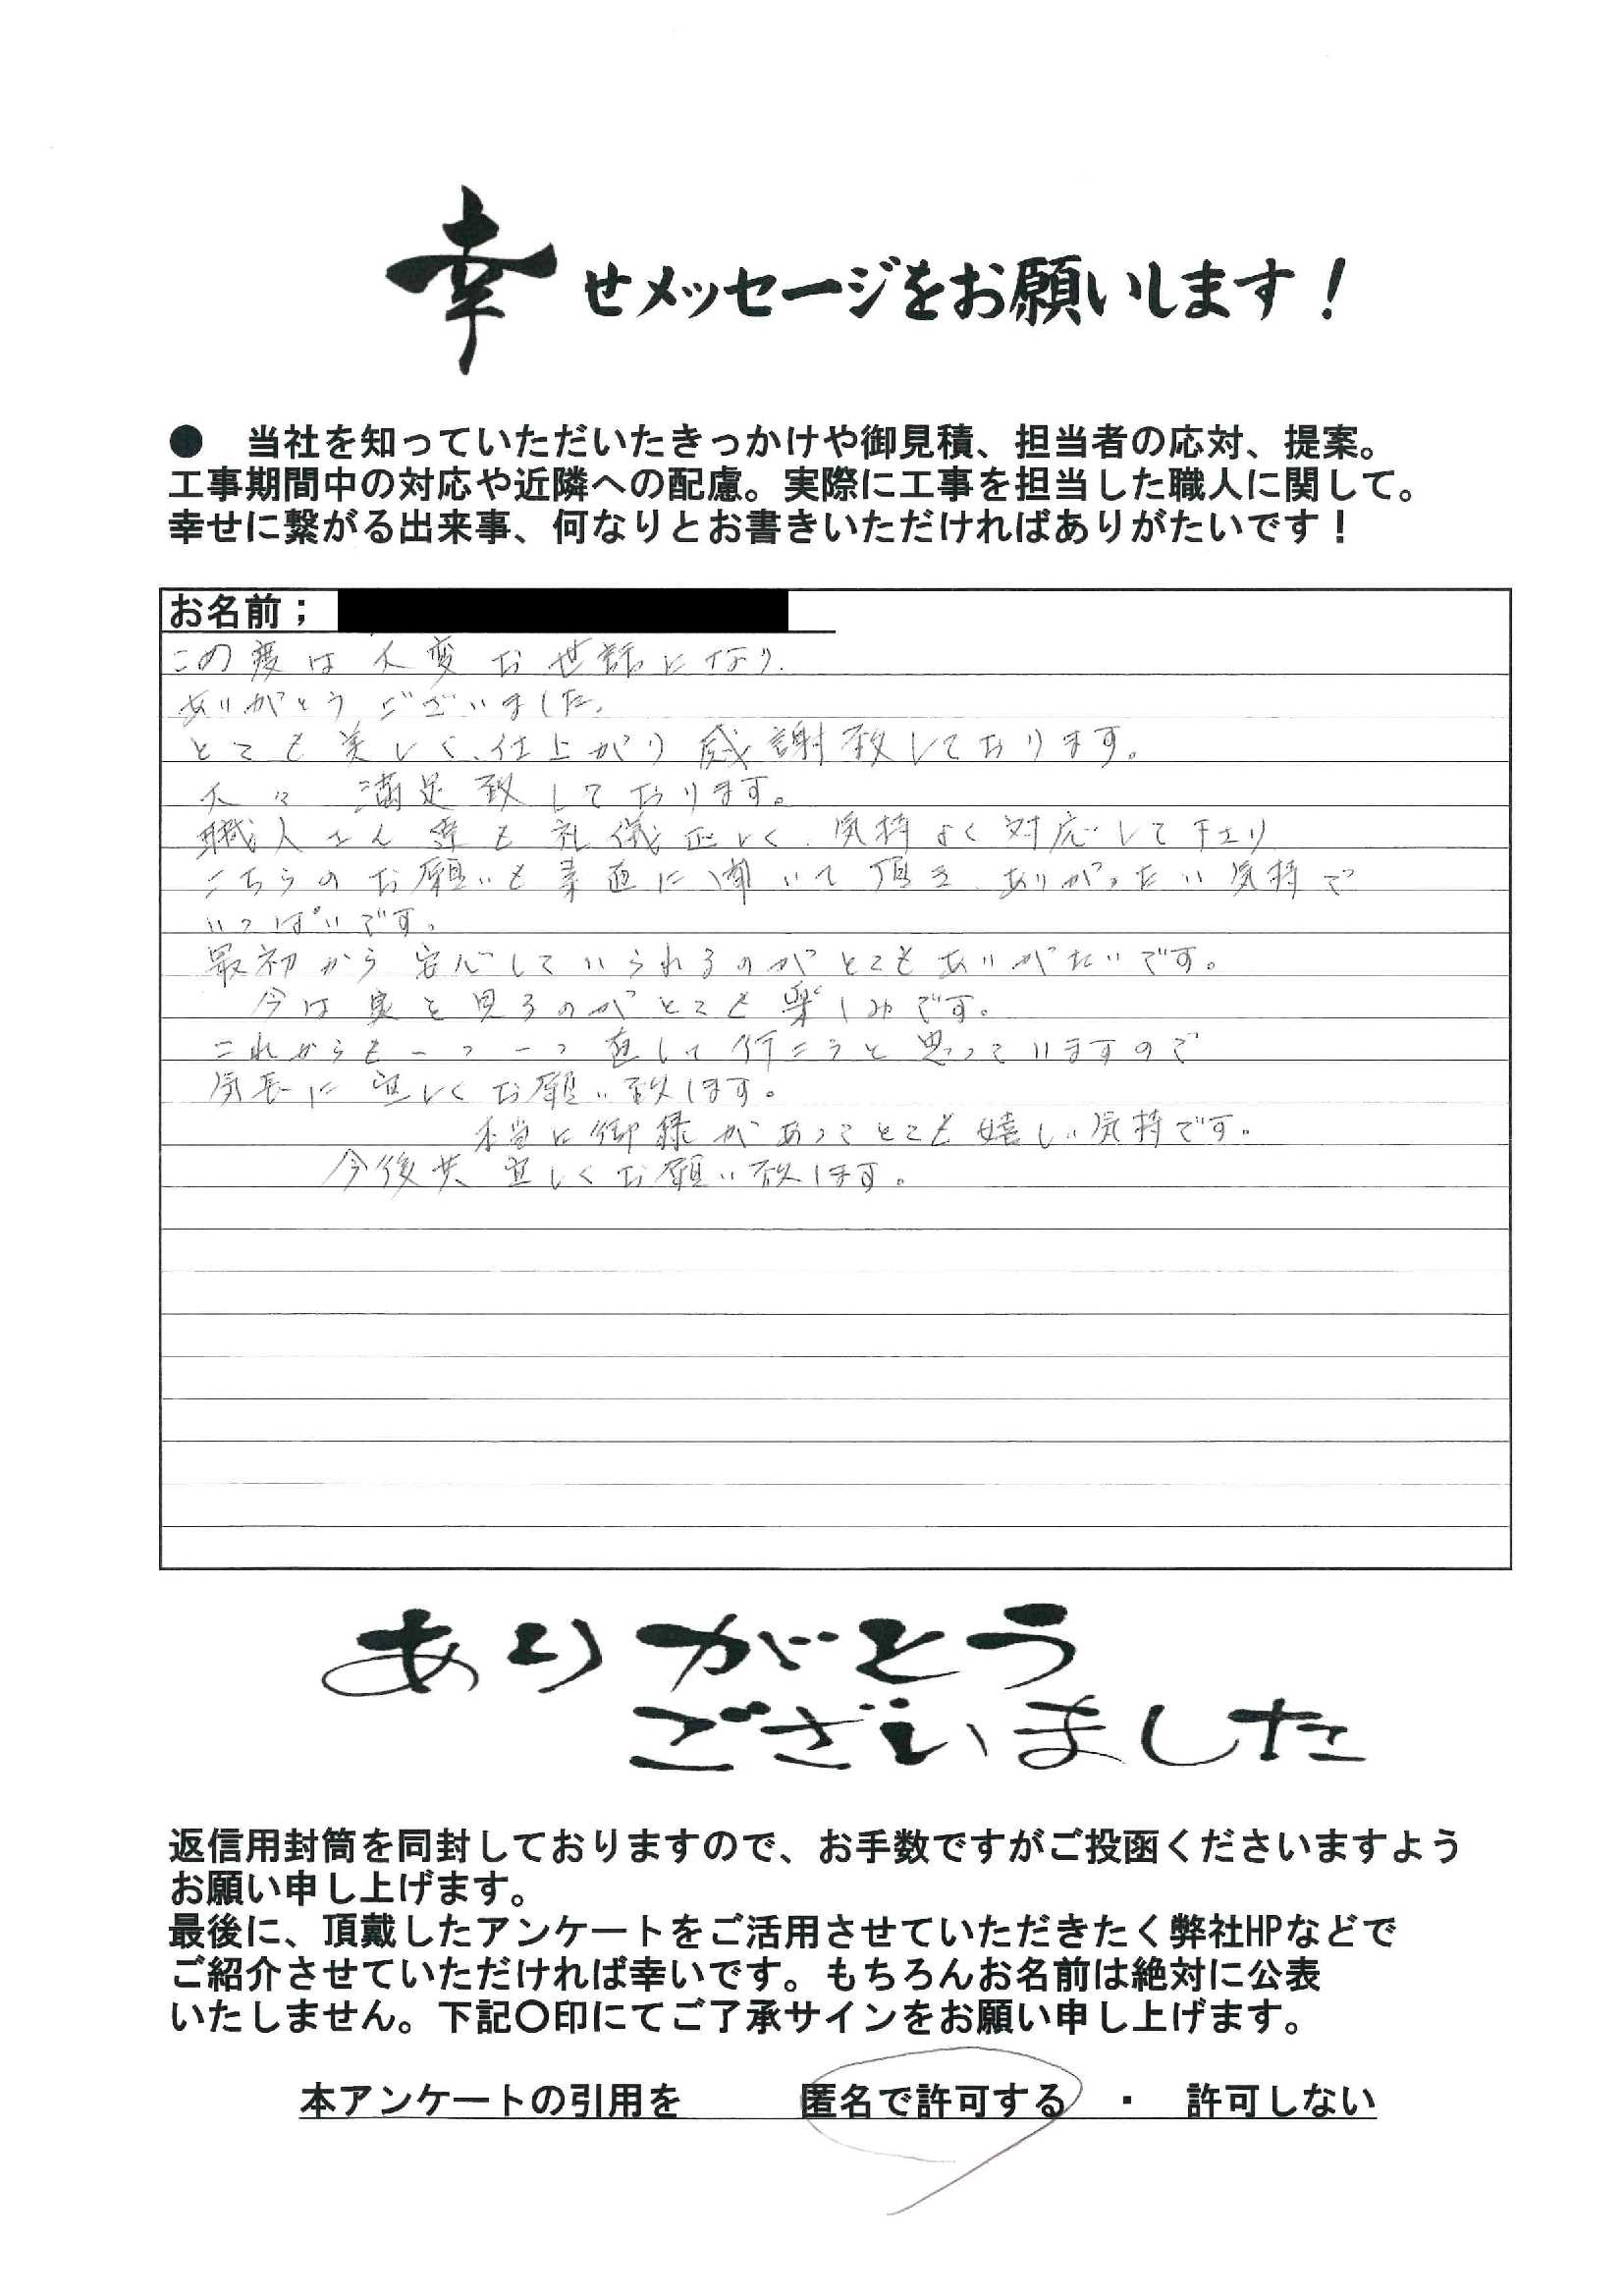 幸せメッセージをお願いします！
● 当社を知っていただいたきっかけや御見積、担当者の応対、提案。
工事期間中の対応や近隣への配慮。実際に工事を担当した職人に関して。
幸せに繋がる出来事、何なりとお書きいただければありがたいです！
お名前；
この度は大変お世話になり、
ありがとうございました。
とても美しく、仕上がり感謝致しております。
大々満足致しております。
職人さん達も礼儀正しく、気持よく対応して下さり
こちらのお願いも素直に聞いて頂き、ありがたい気持で
いっぱいです。
最初から安心していられるのがとてもありがたいです。
今は家を見るのがとても楽しみです。
これからも一つ一つ直して行こうと思っていますので
気長に宜しくお願い致します。
本当に御縁があってとても嬉しい気持です。
今後共宜しくお願い致します。
ありがとう
ございました
返信用封筒を同封しておりますので、お手数ですがご投函くださいますよう
お願い申し上げます。
最後に、頂戴したアンケートをご活用させていただきたく弊社HPなどで
ご紹介させていただければ幸いです。もちろんお名前は絶対に公表
いたしません。下記〇印にてご了承サインをお願い申し上げます。
本アンケートの引用を 匿名で許可する ・ 許可しない